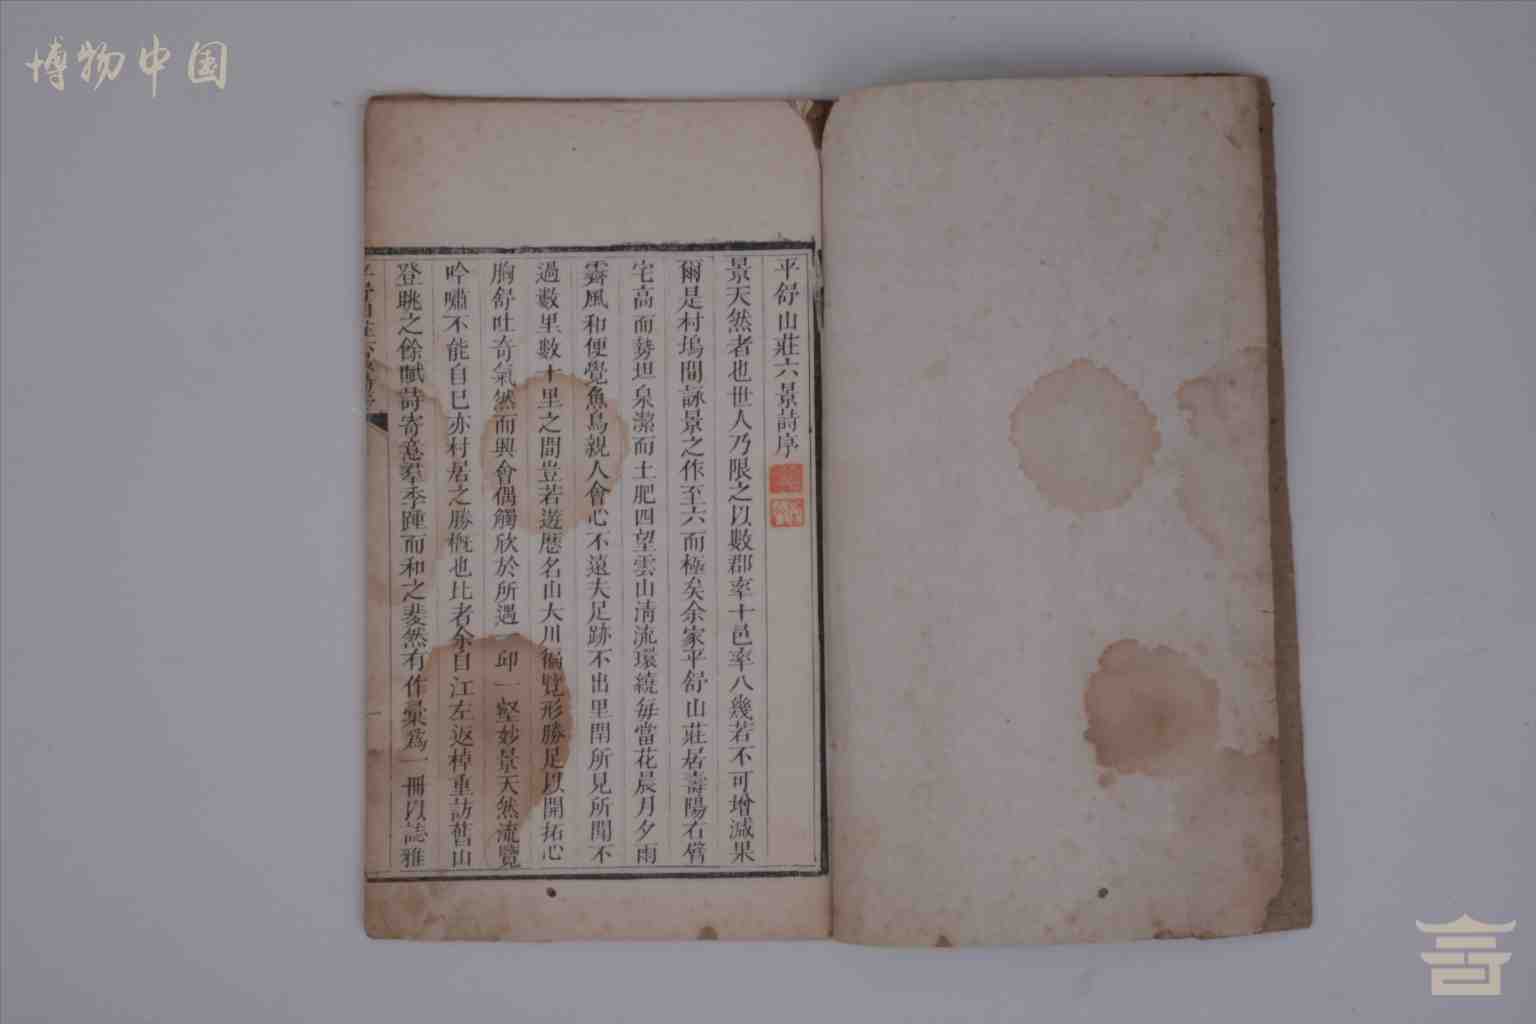 博物中国
平舒山莊六景詩序
景天然者也世人乃限之以數郡率十邑率八幾若不可增減果
爾是村塢間詠景之作至六而極矣余家平舒山莊居壽陽右僻
宅高而勢坦泉潔而土肥四望雲山淸流環繞每當花晨月夕雨
霽風和便覺魚鳥親人會心不遠夫足跡不出里閈所見所聞不
過數里數十里之間豈若遊歷名山大川徧覽形勝足以開拓心
胸舒吐奇氣然而興會偶觸欣於所遇一邱一壑妙景天然流覽
吟嘯不能自已亦村居之勝槪也比者余自江左返棹重訪舊山
登眺之餘賦詩寄意羣季踵而和之斐然有作彙爲一冊以誌雅